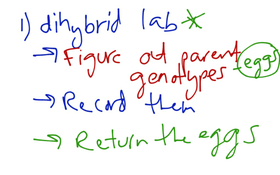 1) dihybrid lab *
→ Figure out parent
genotypes - eggs
→ Record them
→ Return the eggs